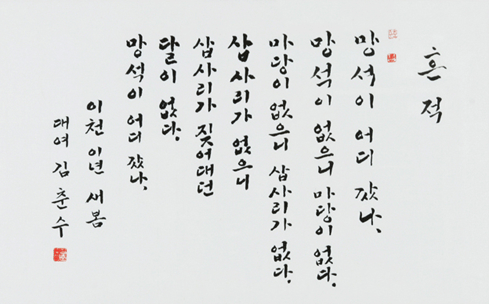 흔적
망석이 어디 갔나.
망석이 없으니 마당이 없다.
마당이 없으니 삽사리가 없다.
삽사리가 없으니
삽사리가 짖어대던
달이 없다.
망석이 어디 갔나.
이천 이년 새봄
대여 김춘수